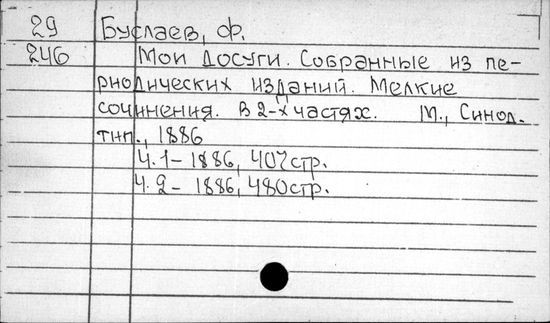 29 Буслаев, Ф.
246 Мои досуги. Собранные из пе-
риодических изданий. Мелкие
сочинения. В 2-х частях. М., Синод.
тип., 1886
Ч. 1 - 1886, 407 стр.
Ч. 2 - 1886, 480 стр.